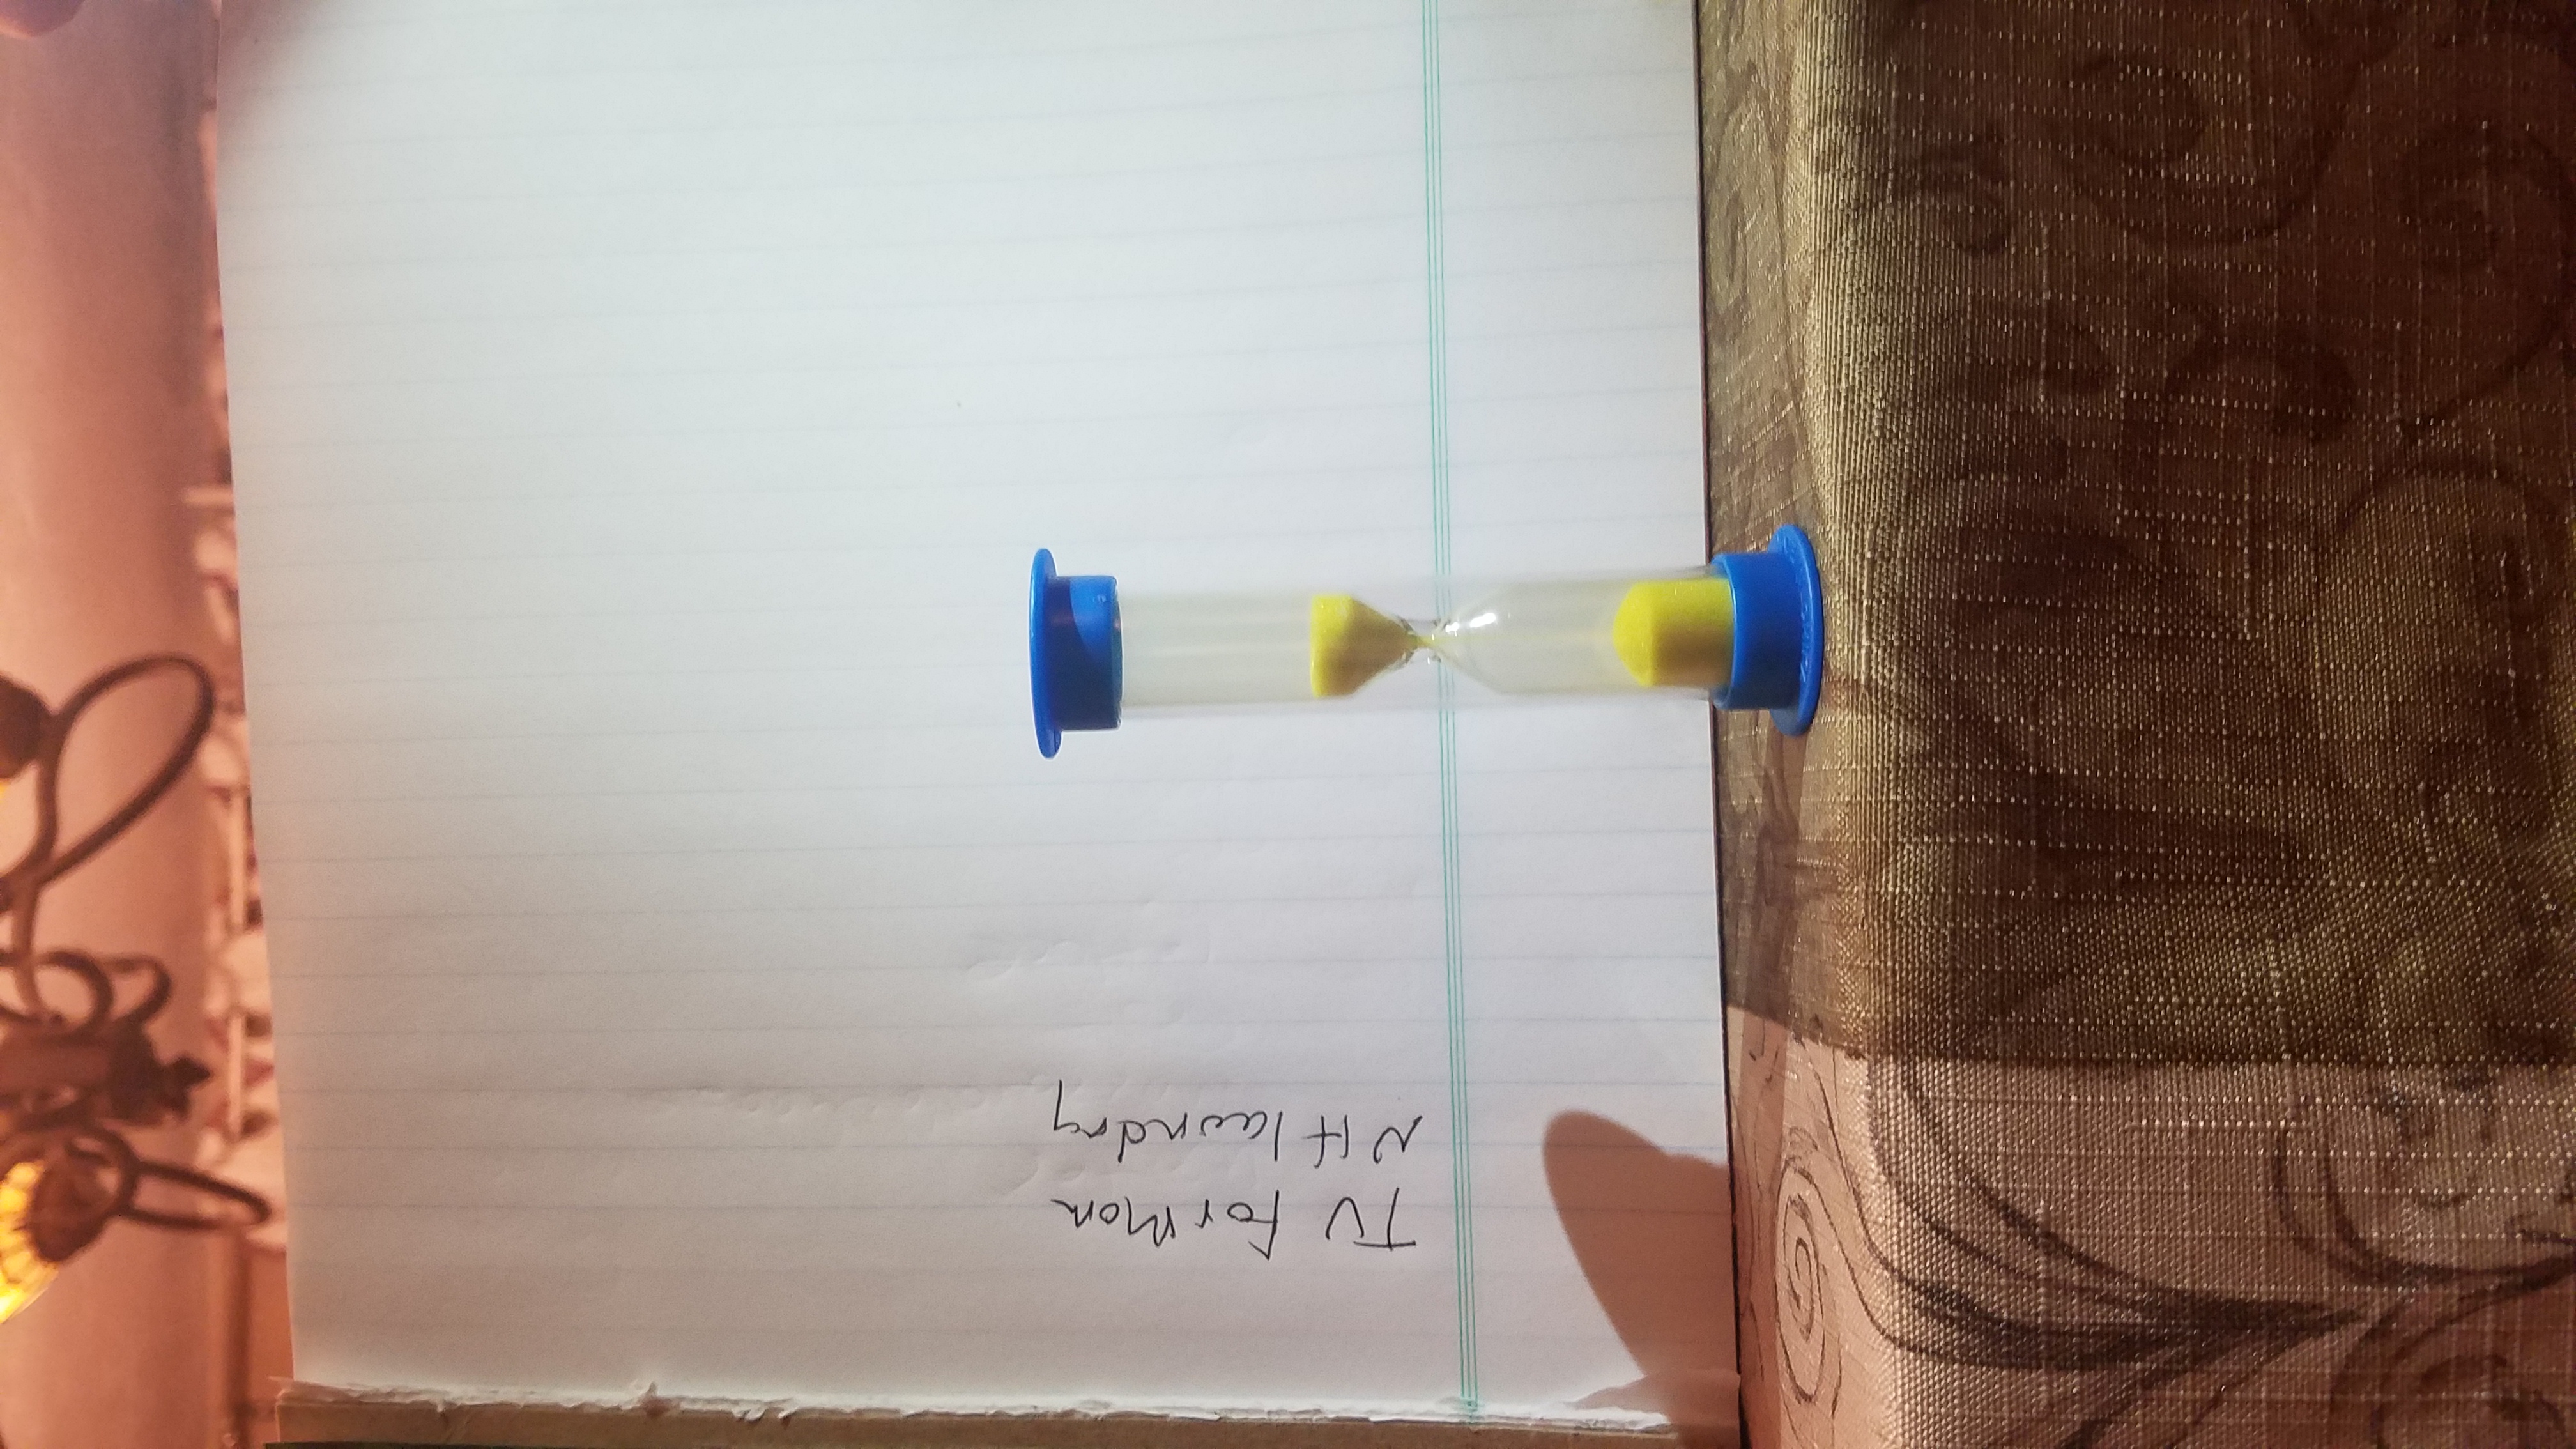 TV for Mom
NH laundry